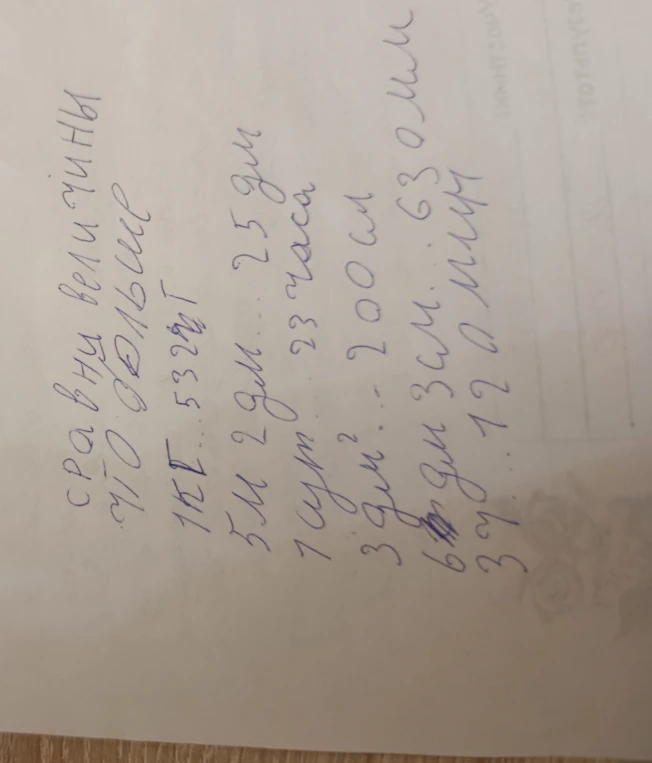 сравни величины
что больше
1кг... 532 кг
5м 2дм... 25 дм
1 сут... 23 часа
3 дм²... 200 см
6 дм 3см... 630мм
3ч... 120 мин